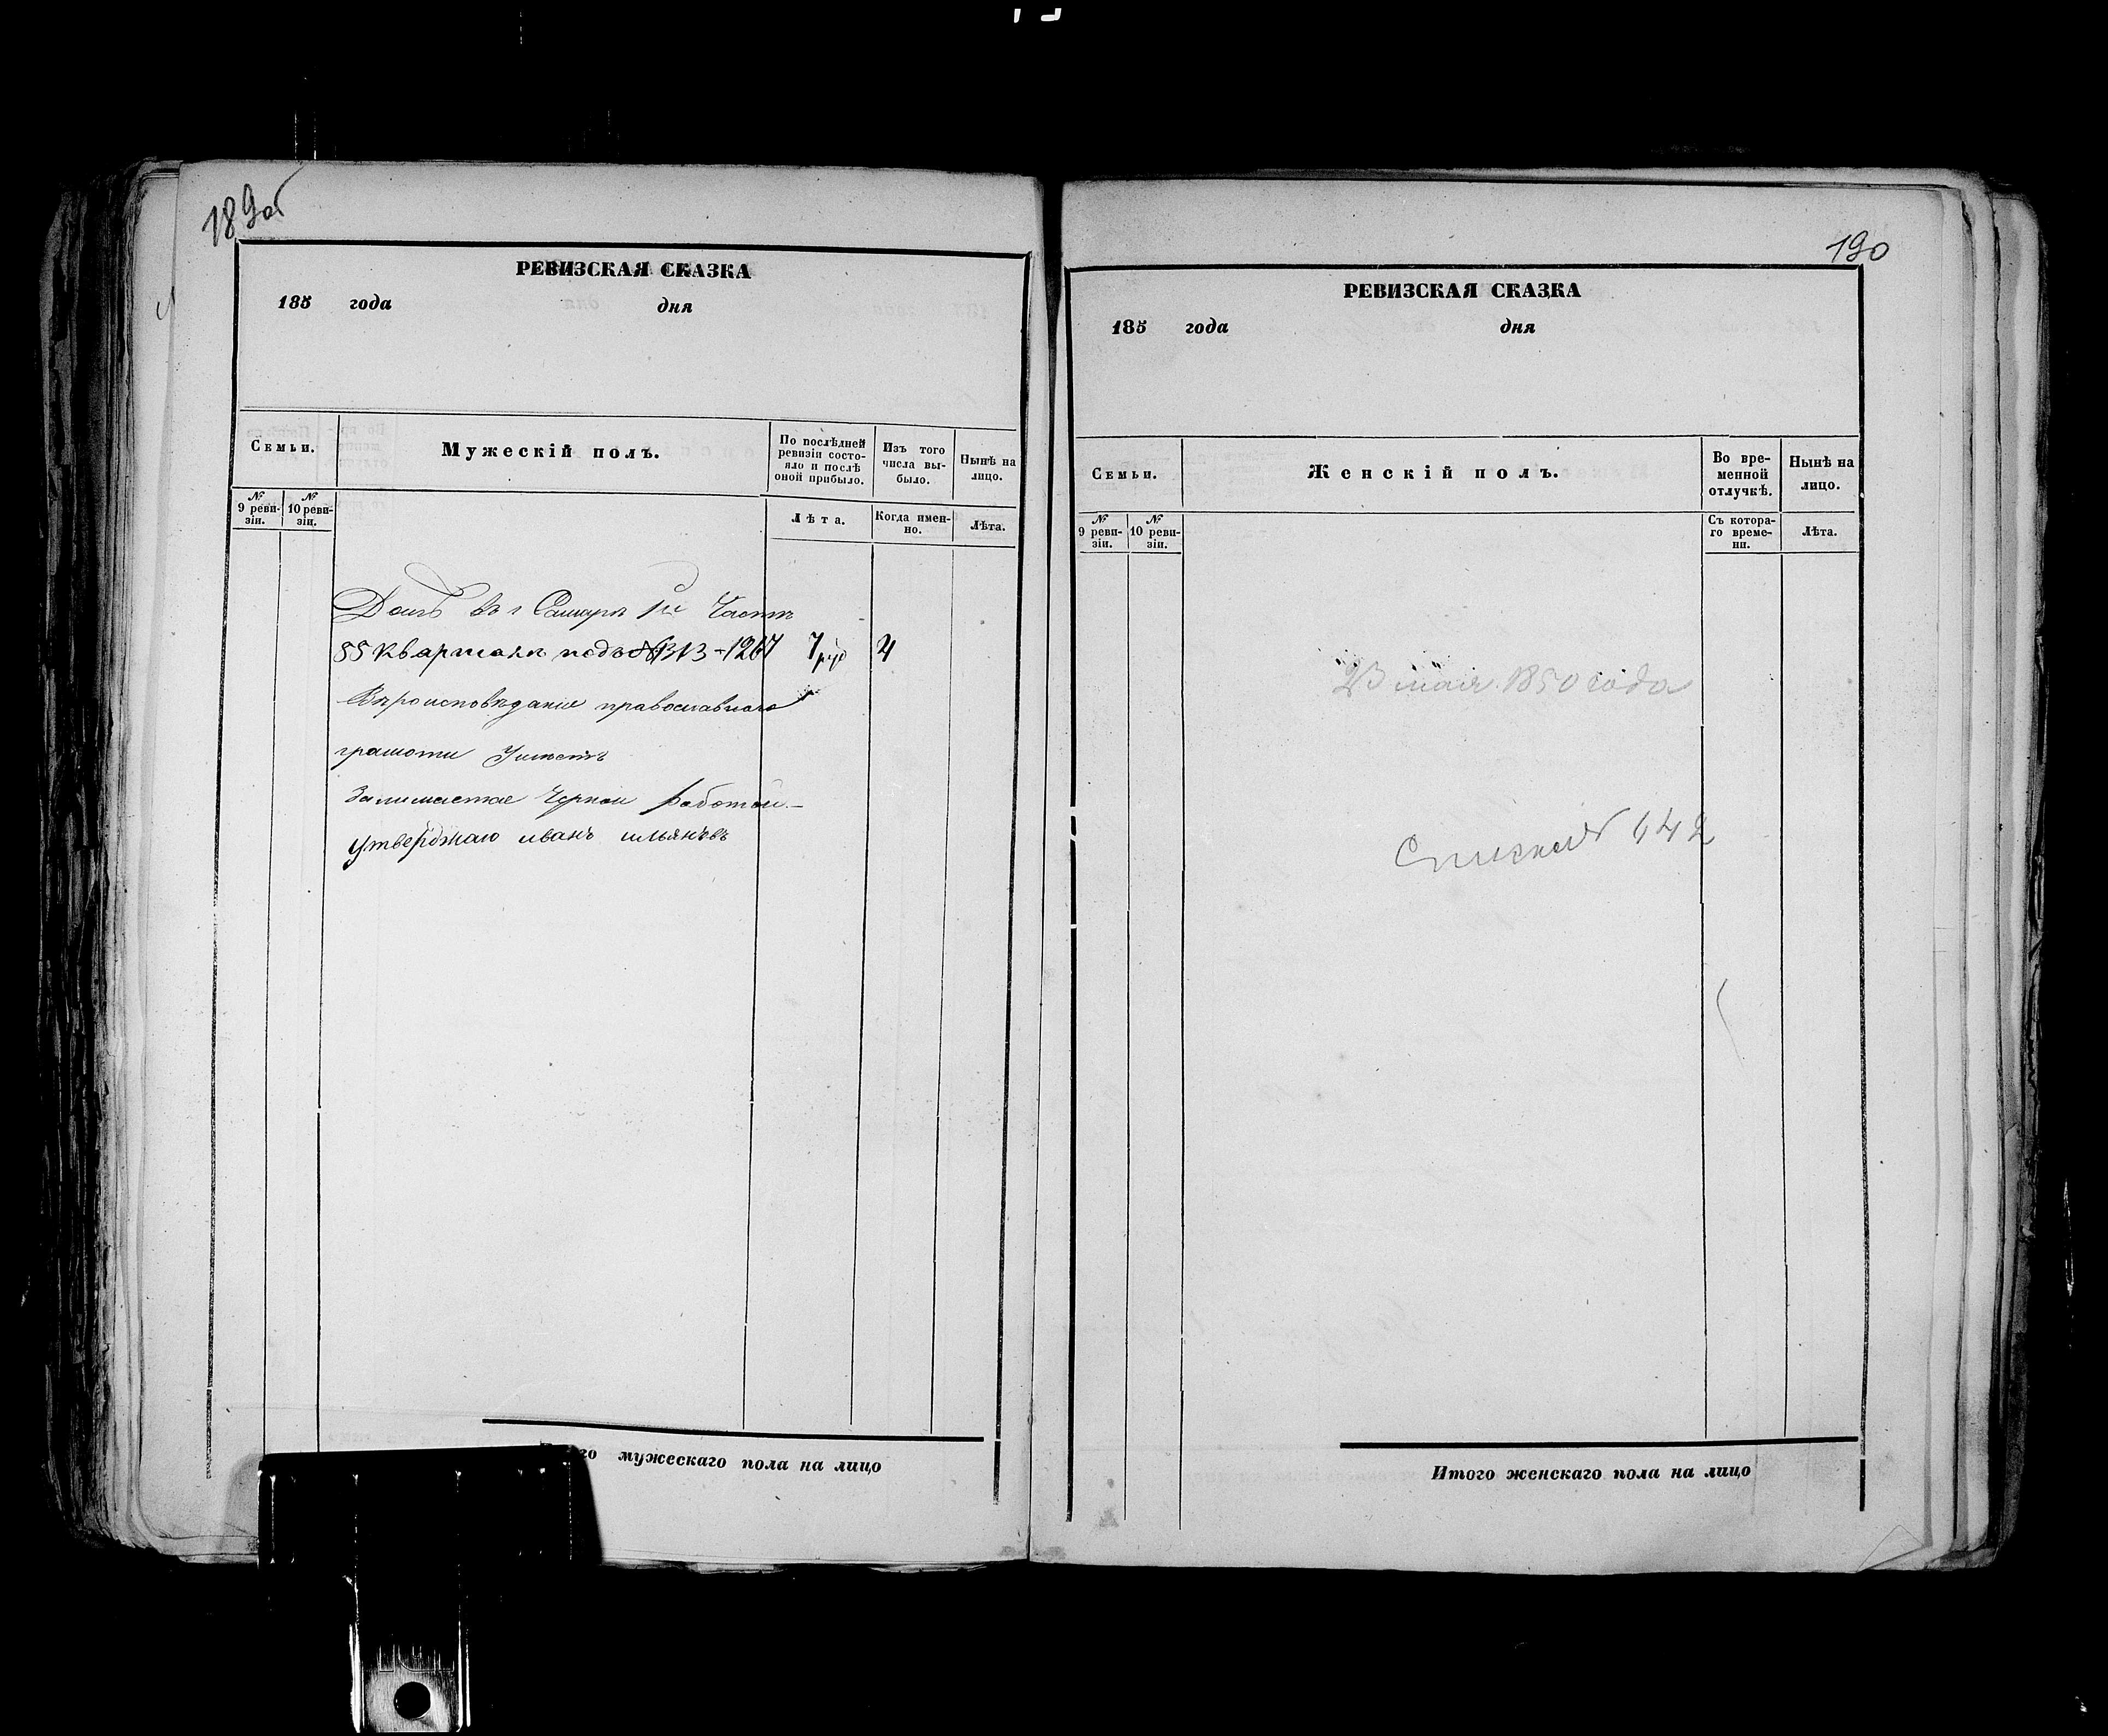 189об
РЕВИЗСКАЯ СКАЗКА
185 года дня
Семьи.
Мужескій полъ.
По послѣдней ревизіи состояло и послѣ оной прибыло.
Изъ того числа выбыло.
Нынѣ на лицо.
№ 9 ревизіи.
№ 10 ревизіи.
Лѣта.
Когда именно.
Лѣта.
Домъ въ г Самарѣ 1й Части
55 Квартала подъ № 313-1267 7 руб 4
Вѣроисповѣданіе православнаго
грамоти Умѣетъ
Занимаетсе Черной работой.-
Утверждаю иванъ ильянъвъ
мужескаго пола на лицо
190
РЕВИЗСКАЯ СКАЗКА
185 года дня
Семьи.
Женскій полъ.
Во временной отлучкѣ.
Нынѣ на лицо.
№ 9 ревизіи.
№ 10 ревизіи.
Съ котораго времени.
Лѣта.
23 мая 1850 года
642
Итого женскаго пола на лицо